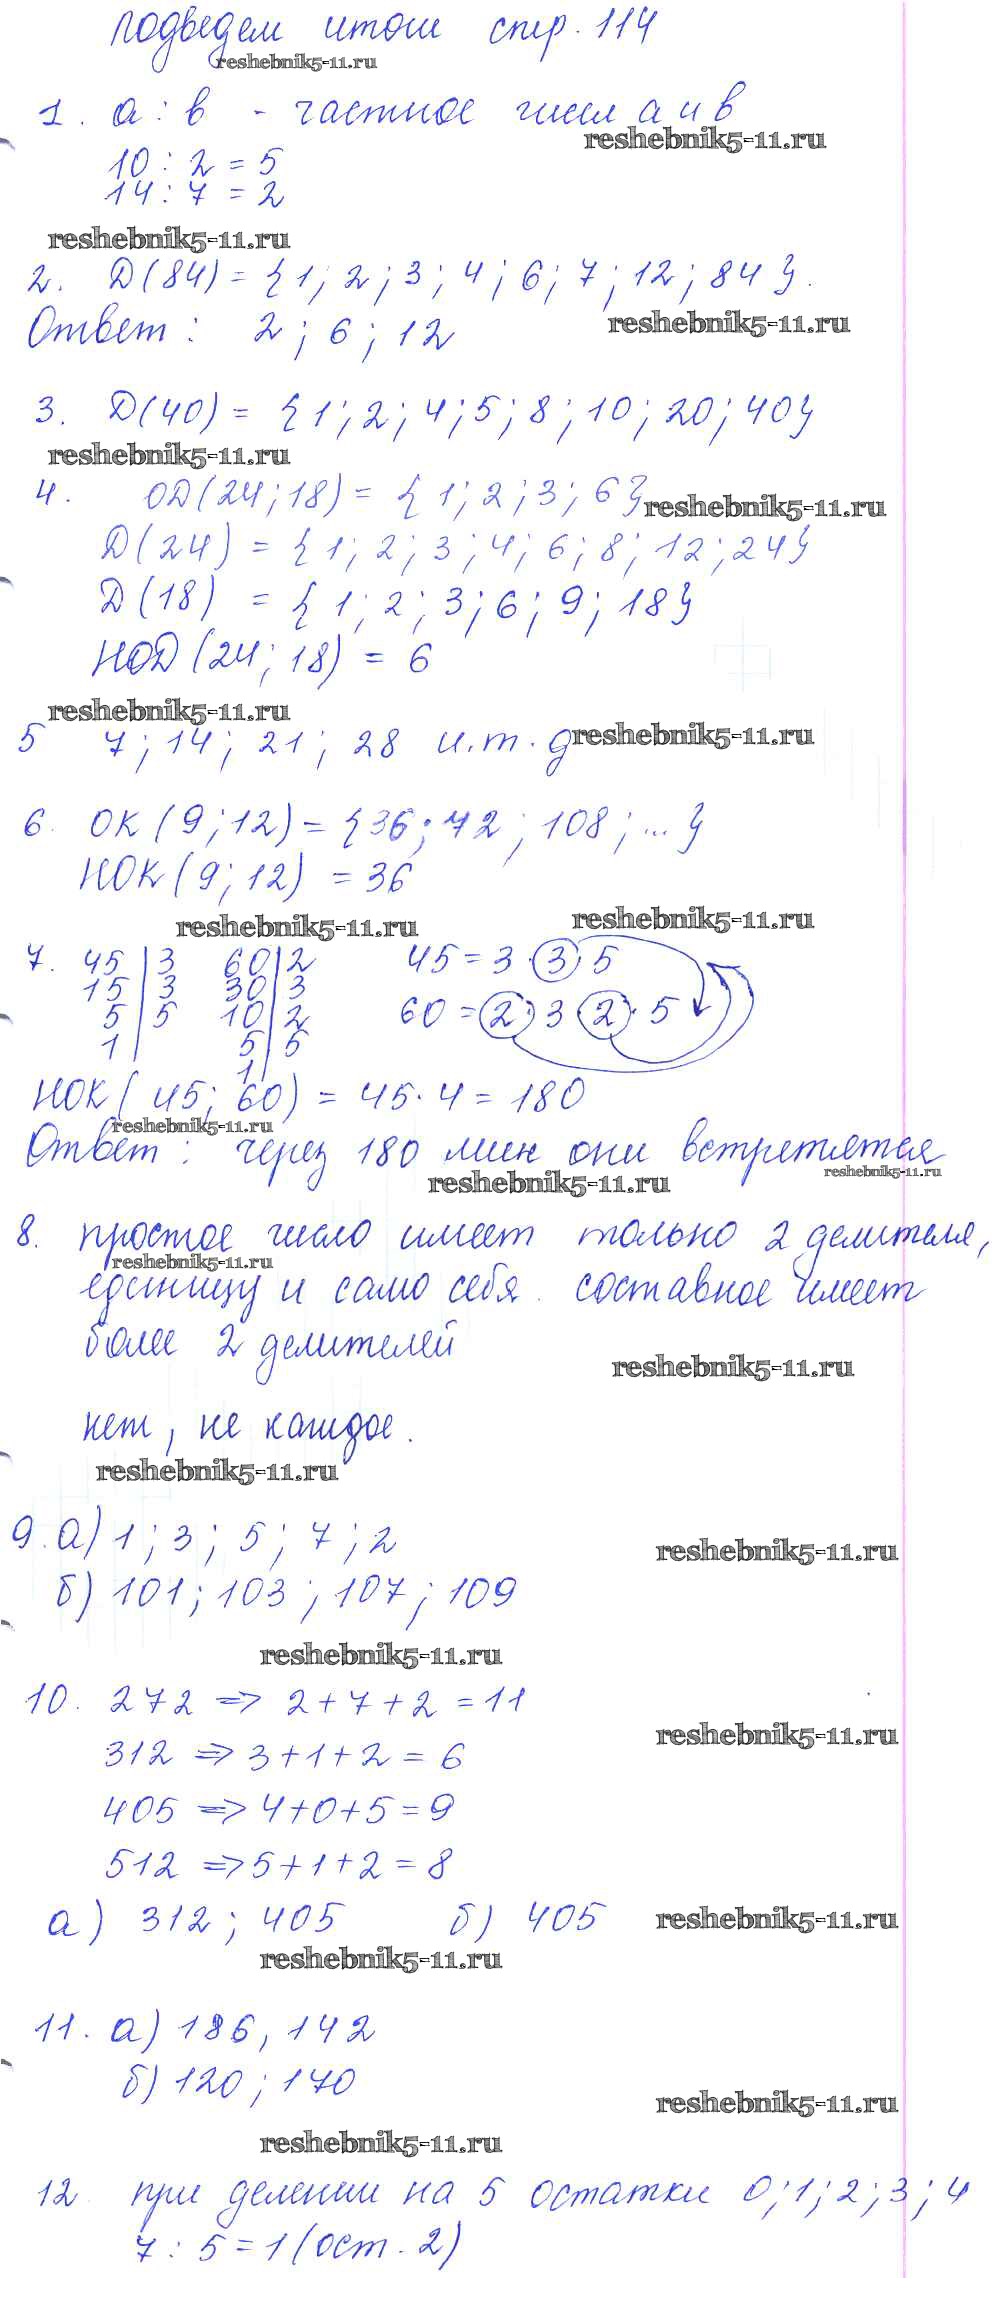 подведем итоги стр. 114
reshebnik5-11.ru
1. а : в - частное чисел а и в
reshebnik5-11.ru
10 : 2 = 5
14 : 7 = 2
reshebnik5-11.ru
2. D(84) = {1; 2; 3; 4; 6; 7; 12; 84}.
Ответ: 2; 6; 12
reshebnik5-11.ru
3. D(40) = {1; 2; 4; 5; 8; 10; 20; 40}
reshebnik5-11.ru
4. ОD(24; 18) = {1; 2; 3; 6}
reshebnik5-11.ru
D(24) = {1; 2; 3; 4; 6; 8; 12; 24}
D(18) = {1; 2; 3; 6; 9; 18}
НОD(24; 18) = 6
reshebnik5-11.ru
5 7; 14; 21; 28 и.т.д
reshebnik5-11.ru
6. ОК(9; 12) = {36; 72; 108; ...}
НОК(9; 12) = 36
reshebnik5-11.ru reshebnik5-11.ru
7. 45 | 3 60 | 2 45 = 3 · 3 · 5
15 | 3 30 | 3
5 | 5 10 | 2 60 = 2 · 3 · 2 · 5
1 | 5 | 5
1 |
НОК(45; 60) = 45 · 4 = 180
reshebnik5-11.ru
Ответ: через 180 мин они встретятся
reshebnik5-11.ru
reshebnik5-11.ru
8. простое число имеет только 2 делителя,
reshebnik5-11.ru
единицу и само себя. составное имеет
более 2 делителей
reshebnik5-11.ru
нет, не каждое.
reshebnik5-11.ru
9. а) 1; 3; 5; 7; 2
reshebnik5-11.ru
б) 101; 103; 107; 109
reshebnik5-11.ru
10. 272 => 2+7+2 = 11
reshebnik5-11.ru
312 => 3+1+2 = 6
405 => 4+0+5 = 9
512 => 5+1+2 = 8
а) 312; 405 б) 405
reshebnik5-11.ru
reshebnik5-11.ru
11. а) 186, 142
б) 120; 170
reshebnik5-11.ru
reshebnik5-11.ru
12. при делении на 5 остатки 0; 1; 2; 3; 4
7 : 5 = 1 (ост. 2)